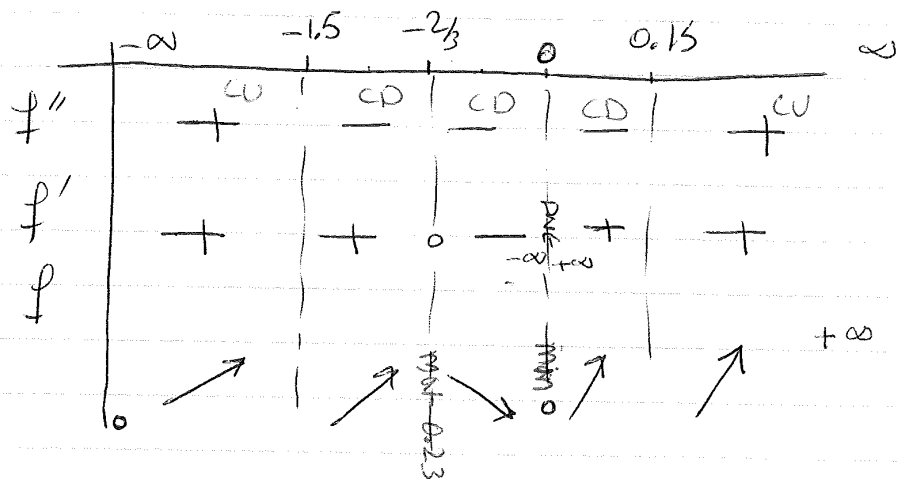 -∞ -1.5 -2/3 0 0.15 ∞
CU CD CD CD CU
f'' + - - - +
f' + + 0 - DNE + +
-∞ +∞
f +∞
0 max 0.23 min 0